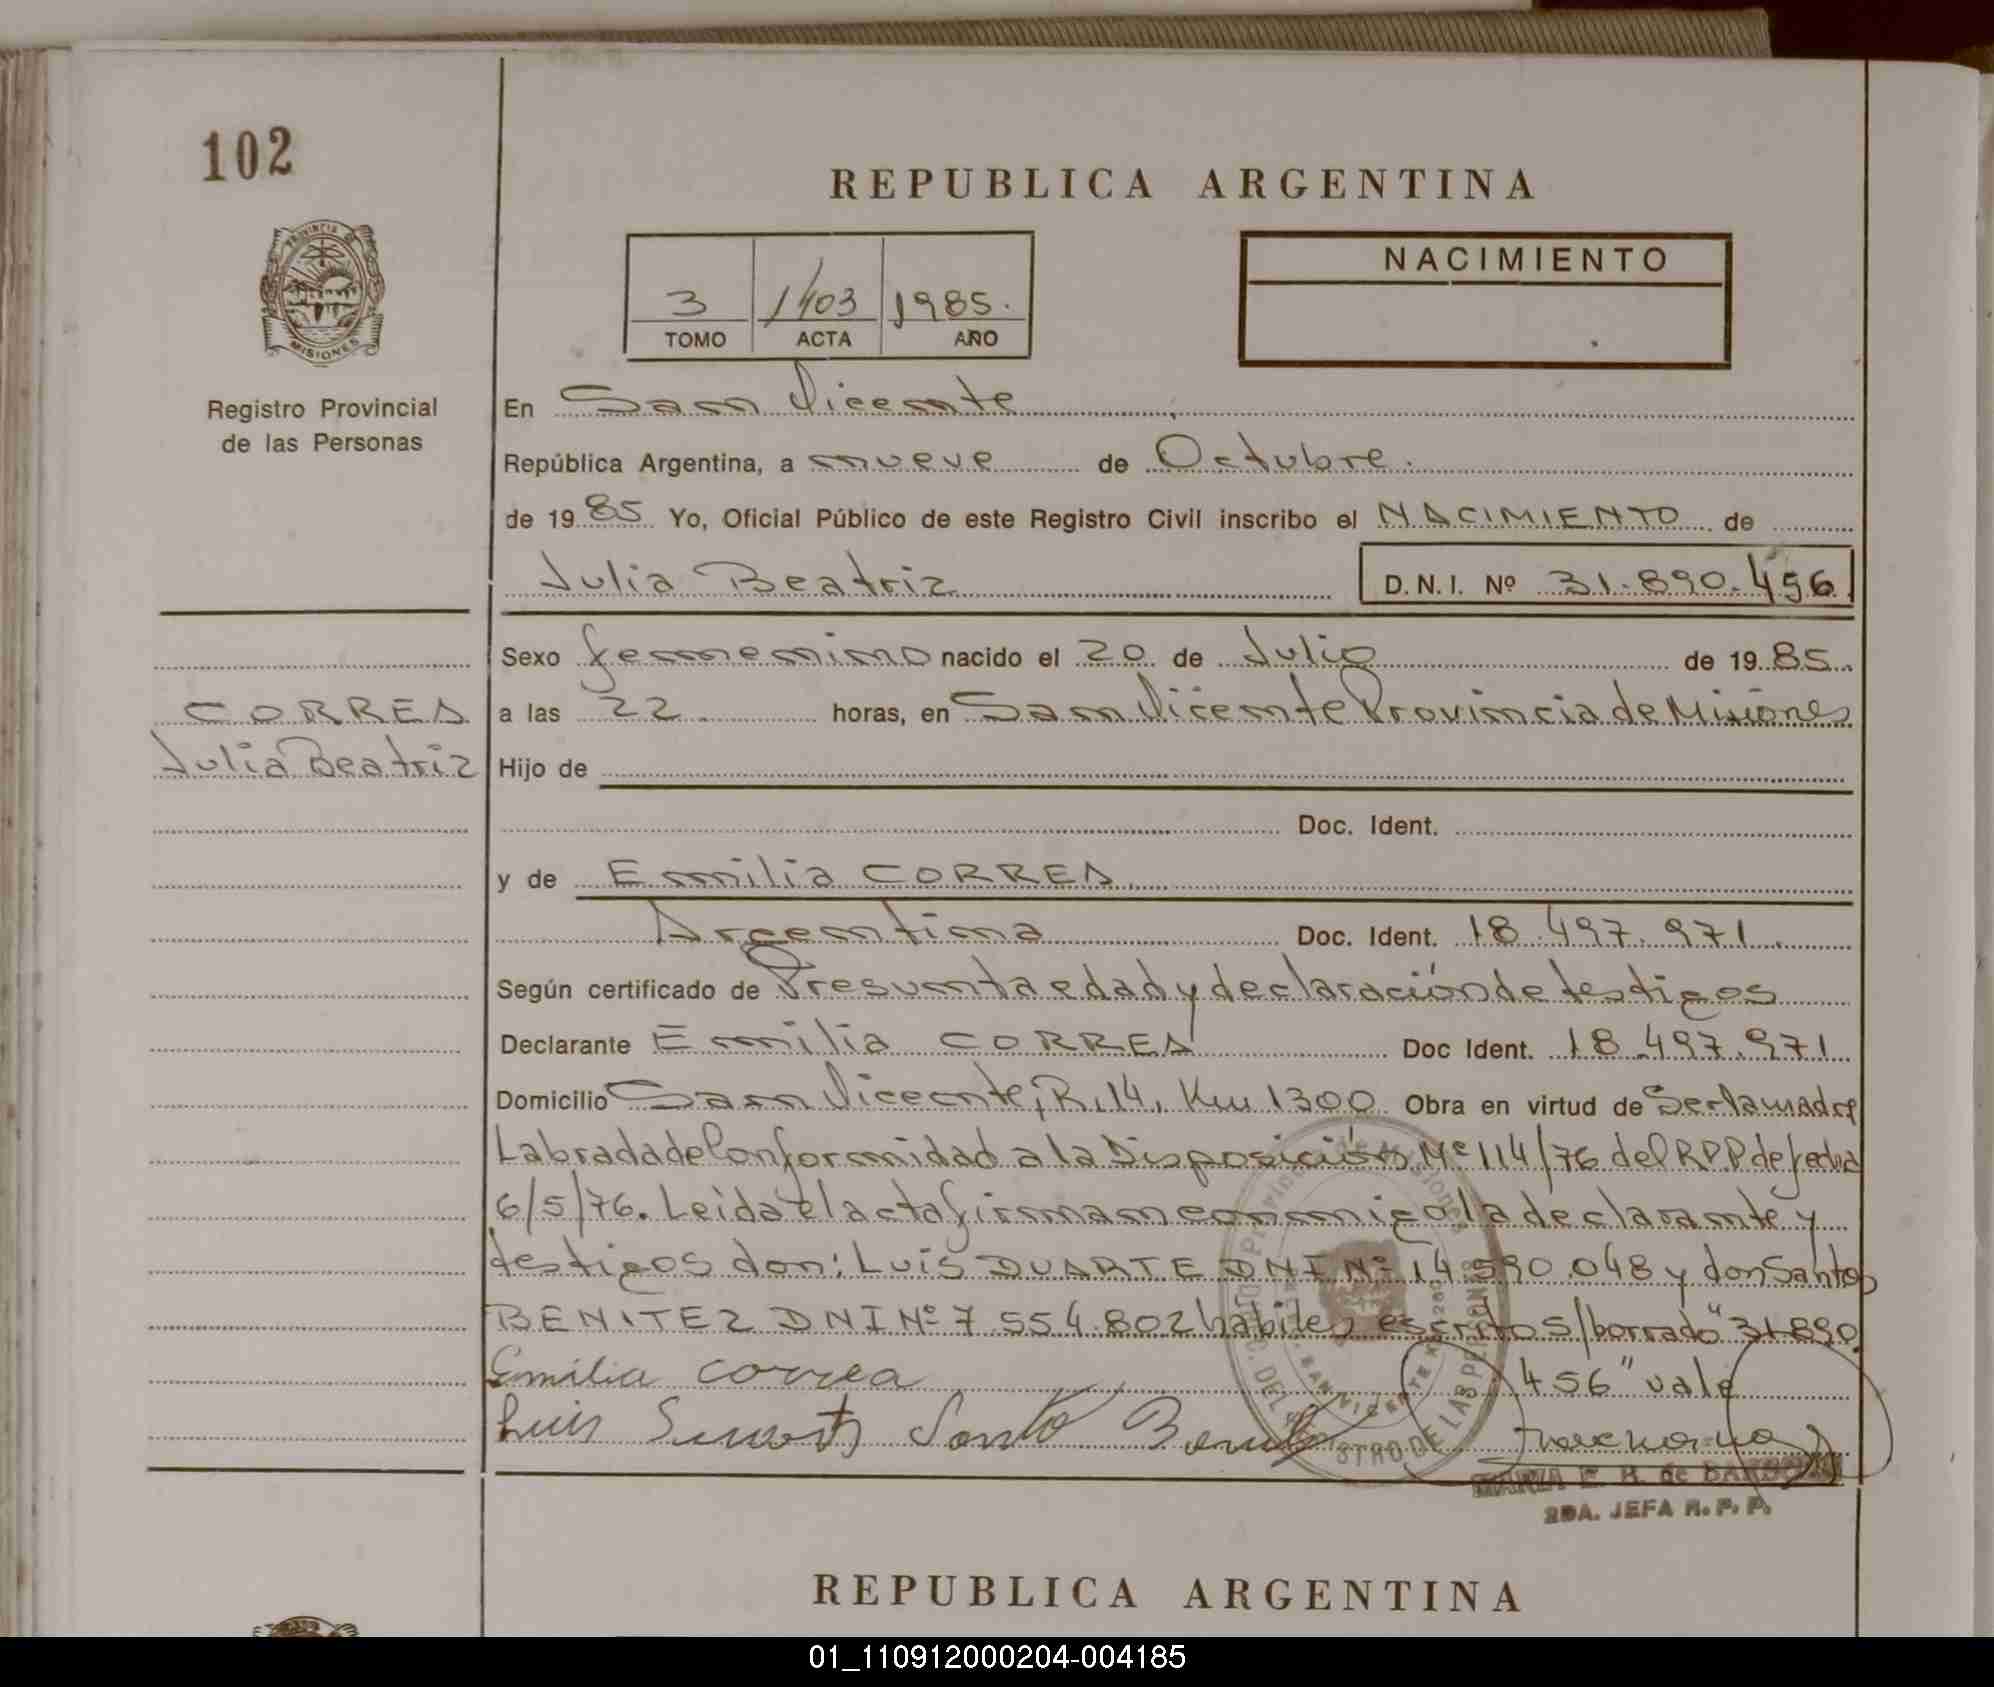 102
REPUBLICA ARGENTINA
PROVINCIA DE
MISIONES
Registro Provincial
de las Personas
3 1403 1985.
TOMO ACTA AÑO
NACIMIENTO
En San Vicente
República Argentina, a nueve de Octubre.
de 1985 Yo, Oficial Público de este Registro Civil inscribo el NACIMIENTO de
Julia Beatriz D.N.I. Nº 31.890.456
Sexo femenino nacido el 20 de Julio de 1985
CORREA
Julia Beatriz
a las 22 horas, en San Vicente Provincia de Misiones
Hijo de
Doc. Ident.
y de Emilia CORREA
Argentina Doc. Ident. 18.497.971
Según certificado de Presunta edad y declaración de testigos
Declarante Emilia CORREA Doc Ident. 18.497.971
Domicilio San Vicente, R.14, Km 1300 Obra en virtud de Ser la madre
Labrada de Conformidad a la Disposición Nº 114/76 del RPP de fecha
6/5/76. Leida el acta firman conmigo la declarante y
testigos don: Luis DUARTE DNI Nº 14.590.048 y don Santos
BENITEZ DNI Nº 7.554.802 habiles escritos/borrado "31.890.
456" vale
Emilia Correa
Luis Santo
MARIA E. H. de
2DA. JEFA R. P. P.
REPUBLICA ARGENTINA
01_110912000204-004185